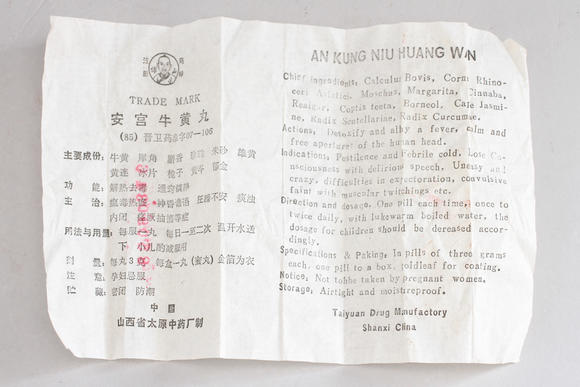 注册
商标
TRADE MARK
安宫牛黄丸
(85) 晋卫药准字07—106
主要成份: 牛黄 犀角 麝香 珍珠 朱砂 雄黄
黄连 冰片 栀子 黄芩 郁金
功 能: 解热去毒 通窍镇静
主 治: 瘟毒热盛 神昏谵语 狂躁不安 痰浊
内闭
用法与用量: 每服一丸 每日一至二次 温开水送
下 小儿酌减服用
剂 量: 每丸3克 每盒一丸 (蜜丸) 金箔为衣
注 意: 孕妇忌服
贮 藏: 密闭 防潮
中 国
山西省太原中药厂制
AN KUNG NIU HUANG WAN
Chief ingredients, Calculus Bovis, Cornu Rhino-
ceri Asiatici, Moschus, Margarita, Cinnaba,
Realgar, Coptis teeta, Borneol, Cape Jasmi-
ne, Radix Scutellariae, Radix Curcumae.
Actions, Detoxify and allay a fever, calm and
free aperture of the human head.
Indications, Pestilence and Febrile cold, Lose Co-
nsciousness with delirious speech, Uneasy and
crazy, difficulties in expectoration, convulsive
faint with muscular twitchings etc.
Direction and dosage. One pill each time, once to
twice daily, with lukewarm boiled water, the
dosage for children should be dereased accor-
dingly.
Specifications & Paking: In pills of three grams
each, one pill to a box, goldleaf for coating.
Notice, Not tobhe taken by pregnant women.
Storage, Airtight and moistureproof.
Taiyuan Drug Manufactory
Shanxi China